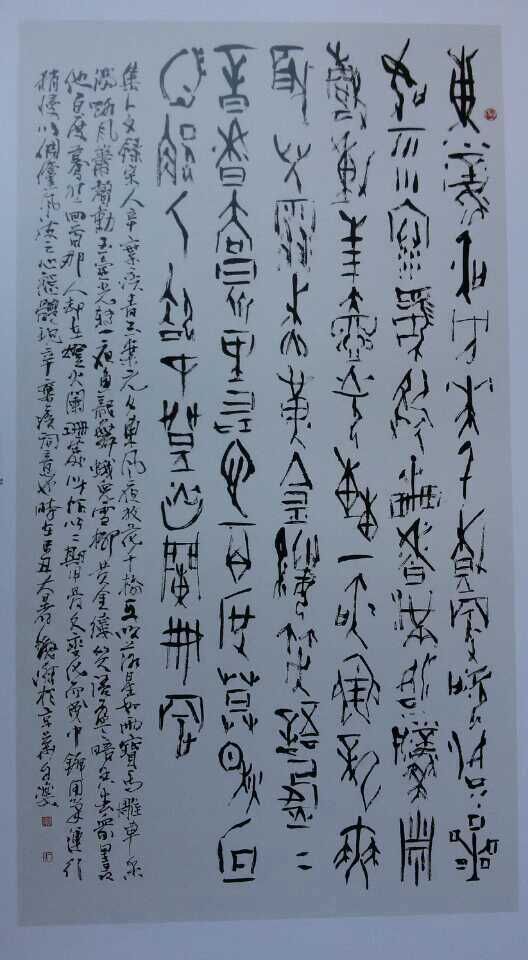 東風夜放花千樹更吹落星
如雨寶馬雕車香滿路鳳簫
聲動玉壺光轉一夜魚龍舞
蛾兒雪柳黃金縷笑語盈=
暗香去眾里尋他千百度驀然回
首那人卻在燈火闌珊處
集卜文錄宋人辛棄疾青玉案元夕東風夜放花千樹更吹落星如雨寶馬雕車香
滿路鳳簫聲動玉壺光轉一夜魚龍舞蛾兒雪柳黃金縷笑語盈=暗香去眾里尋
他百度驀然回首那人卻在燈火闌珊處此帖以二期甲骨文變化而成中鋒用筆運行
稍慢以倜儻風流之心態體現辛棄疾詞意也時在己丑大暑於京華